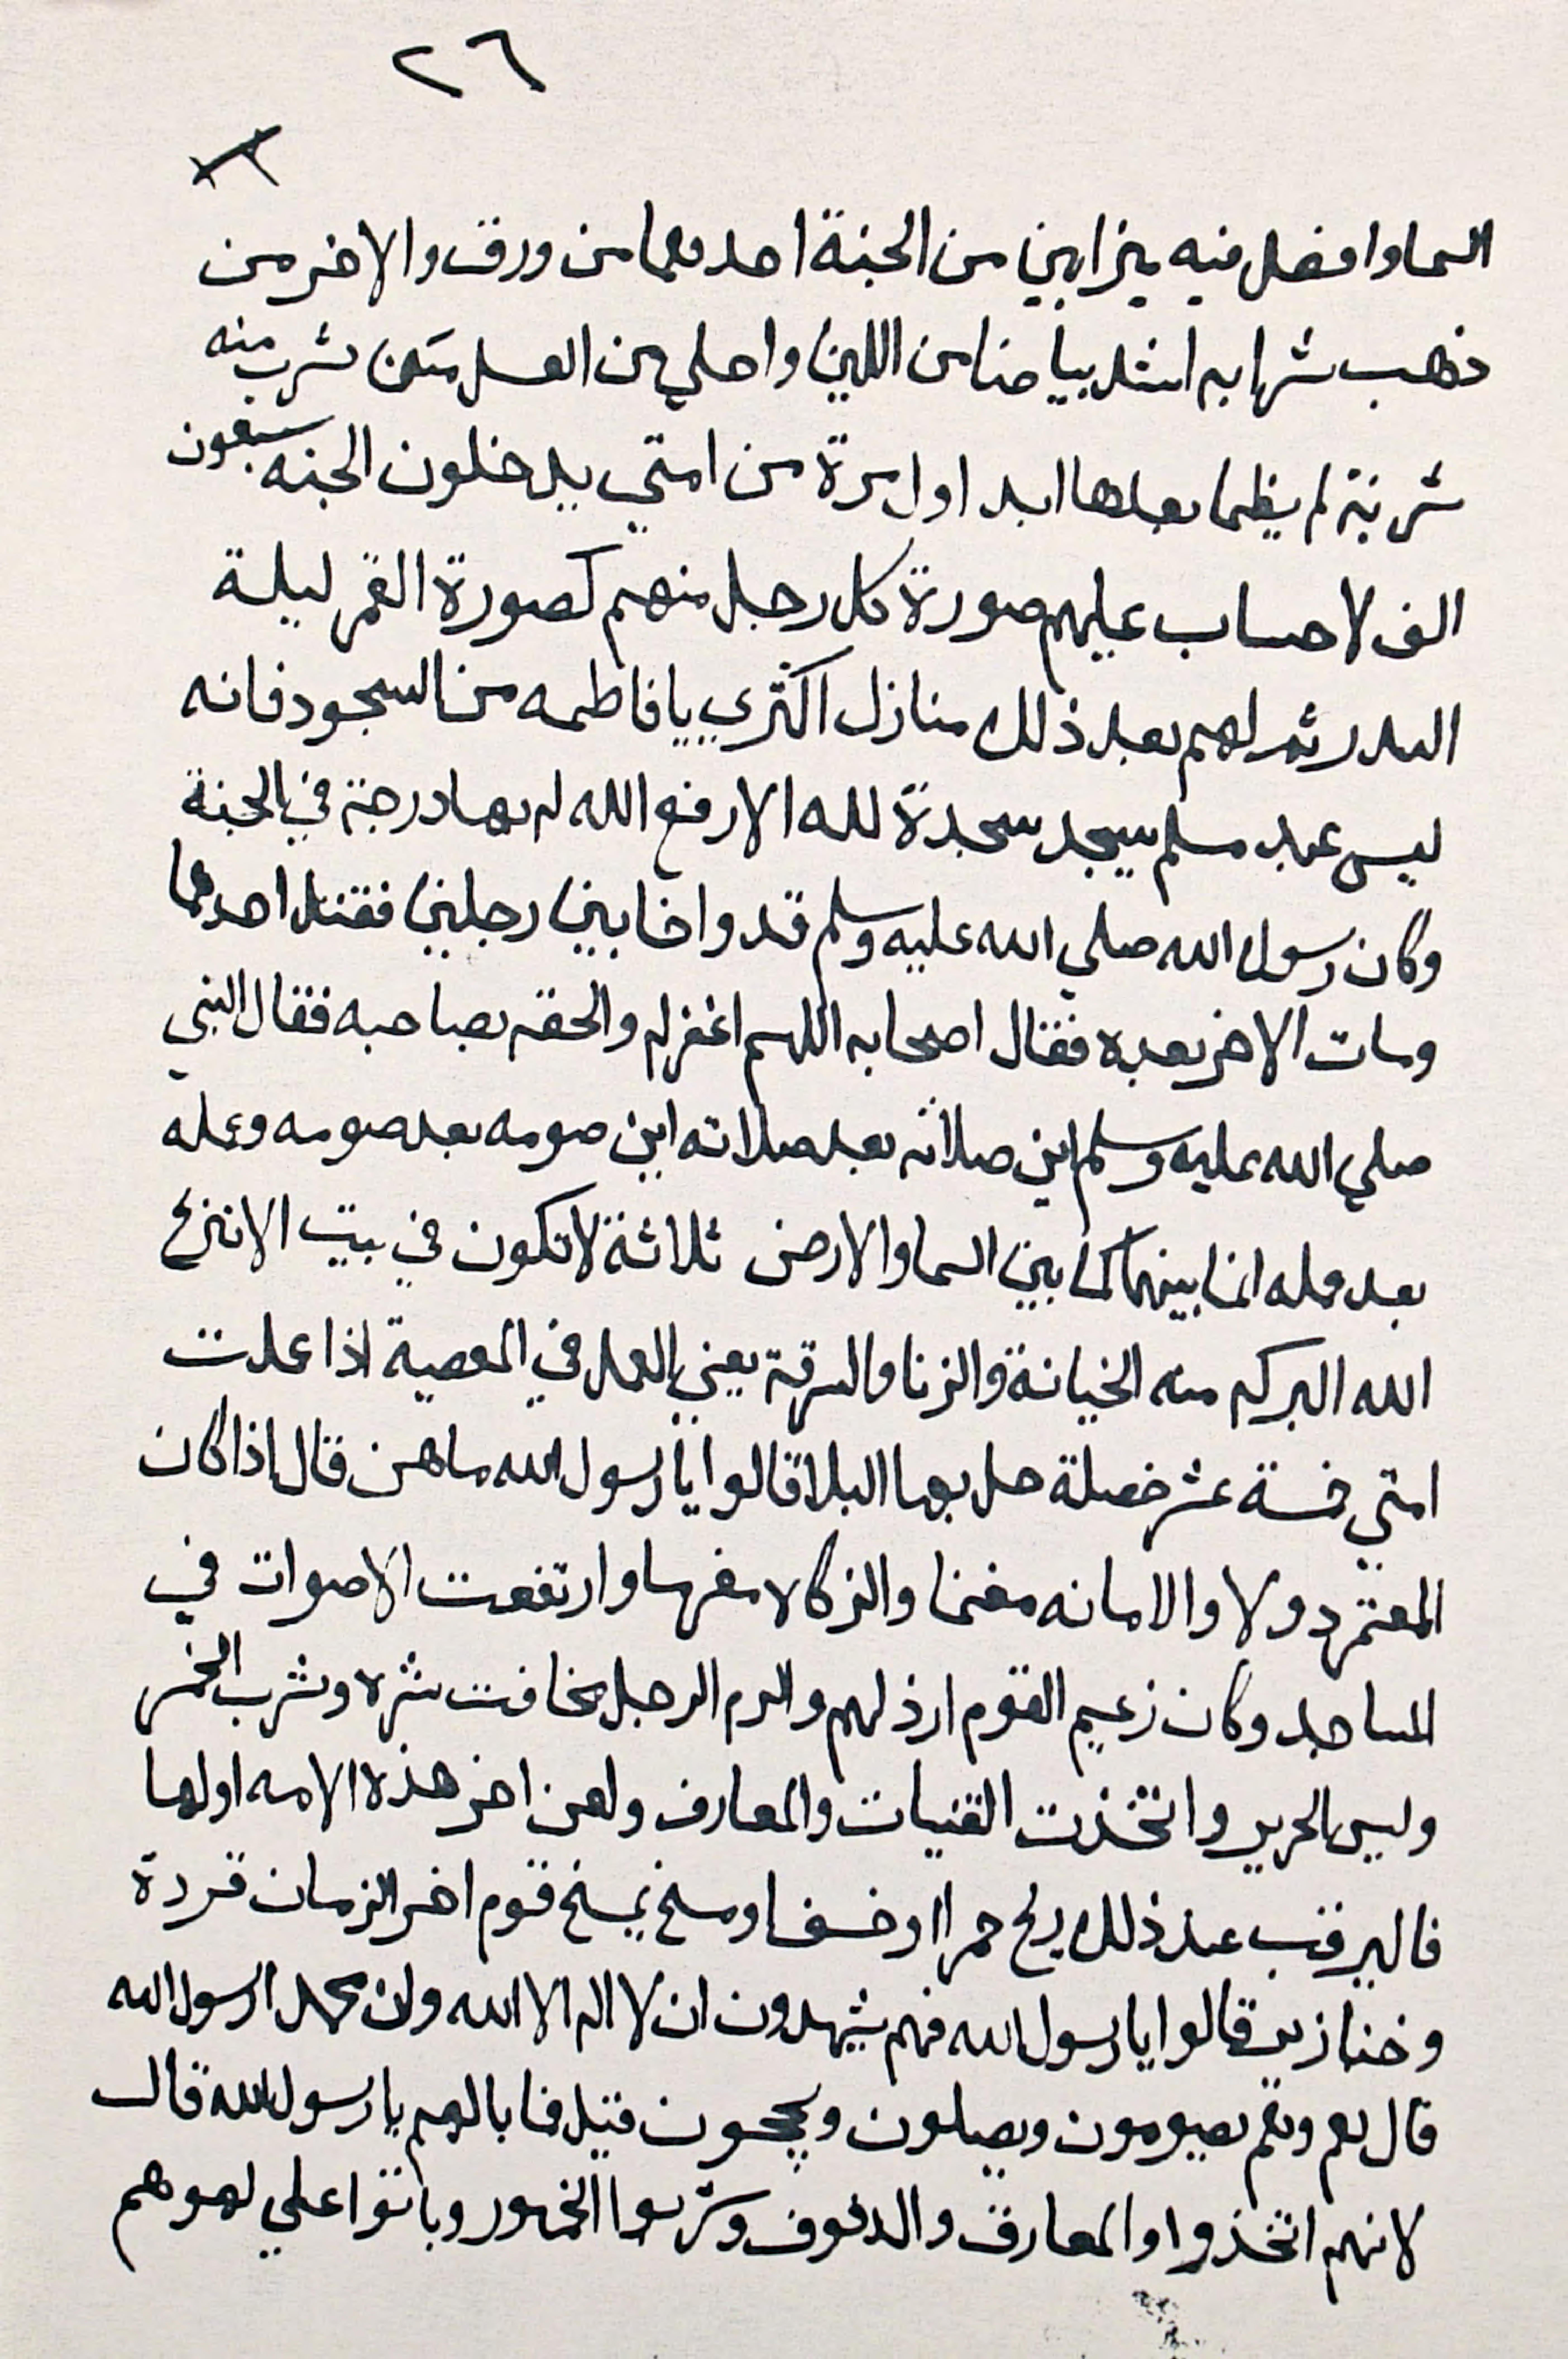 ٢٦
السما وافضل فيه ميزابين من الجنة احدهما من ورق والاخر من
ذهب شرابه اشد بياضا من اللبن واحلي من العسل من شرب منه
شربة لم يظما بعدها ابد اول مرة من امتي يدخلون الجنه سبعون
الف لا حساب عليهم صورة كل رجل منهم كصورة القمر ليلة
البدر ثم لهم بعد ذلك منازل اكثري يا فاطمه من السجود فانه
ليس عبد مسلم يسجد سجدة لله الا رفع الله له بها درجة في الجنة
وكان رسول الله صلي الله عليه وسلم قد واخا بين رجلين فقتل احدهما
ومات الاخر بعده فقال اصحابه اللهم اغفر له والحقه بصاحبه فقال النبي
صلي الله عليه وسلم اين صلاته بعد صلاته اين صومه بعد صومه وعمله
بعد عمله انما بينهما كما بين السما والارض ثلاثة لا تكون في بيت الا نزع
الله البركه منه الخيانة والزنا والسرقة يعني العمل في المعصية اذا عملت
امتي خمسة عشر خصلة حل بها البلا قالوا يا رسول الله ما هن قال اذا كان
المغتم دولا والامانه مغنما والزكاة مغرما وارتفعت الاصوات في
المساجد وكان زعيم القوم ارذلهم واكرم الرجل مخافت شره وشرب الخمر
ولبس الحرير واتخذت القنيات والمعازف ولعن اخر هذه الامه اولها
فاليرقب عند ذلك ريح حمرا او خسفا ومسخ يمسخ قوم اخر الزمان قردة
وخنازير قالوا يا رسول الله فهم يشهدون ان لا اله الا الله وان محمدا رسول الله
قال نعم وهم يصومون ويصلون ويحجون قيل فما بالهم يا رسول الله قال
لانهم اتخذوا والمعازف والدفوف وشربوا الخمور وباتوا علي لهوهم